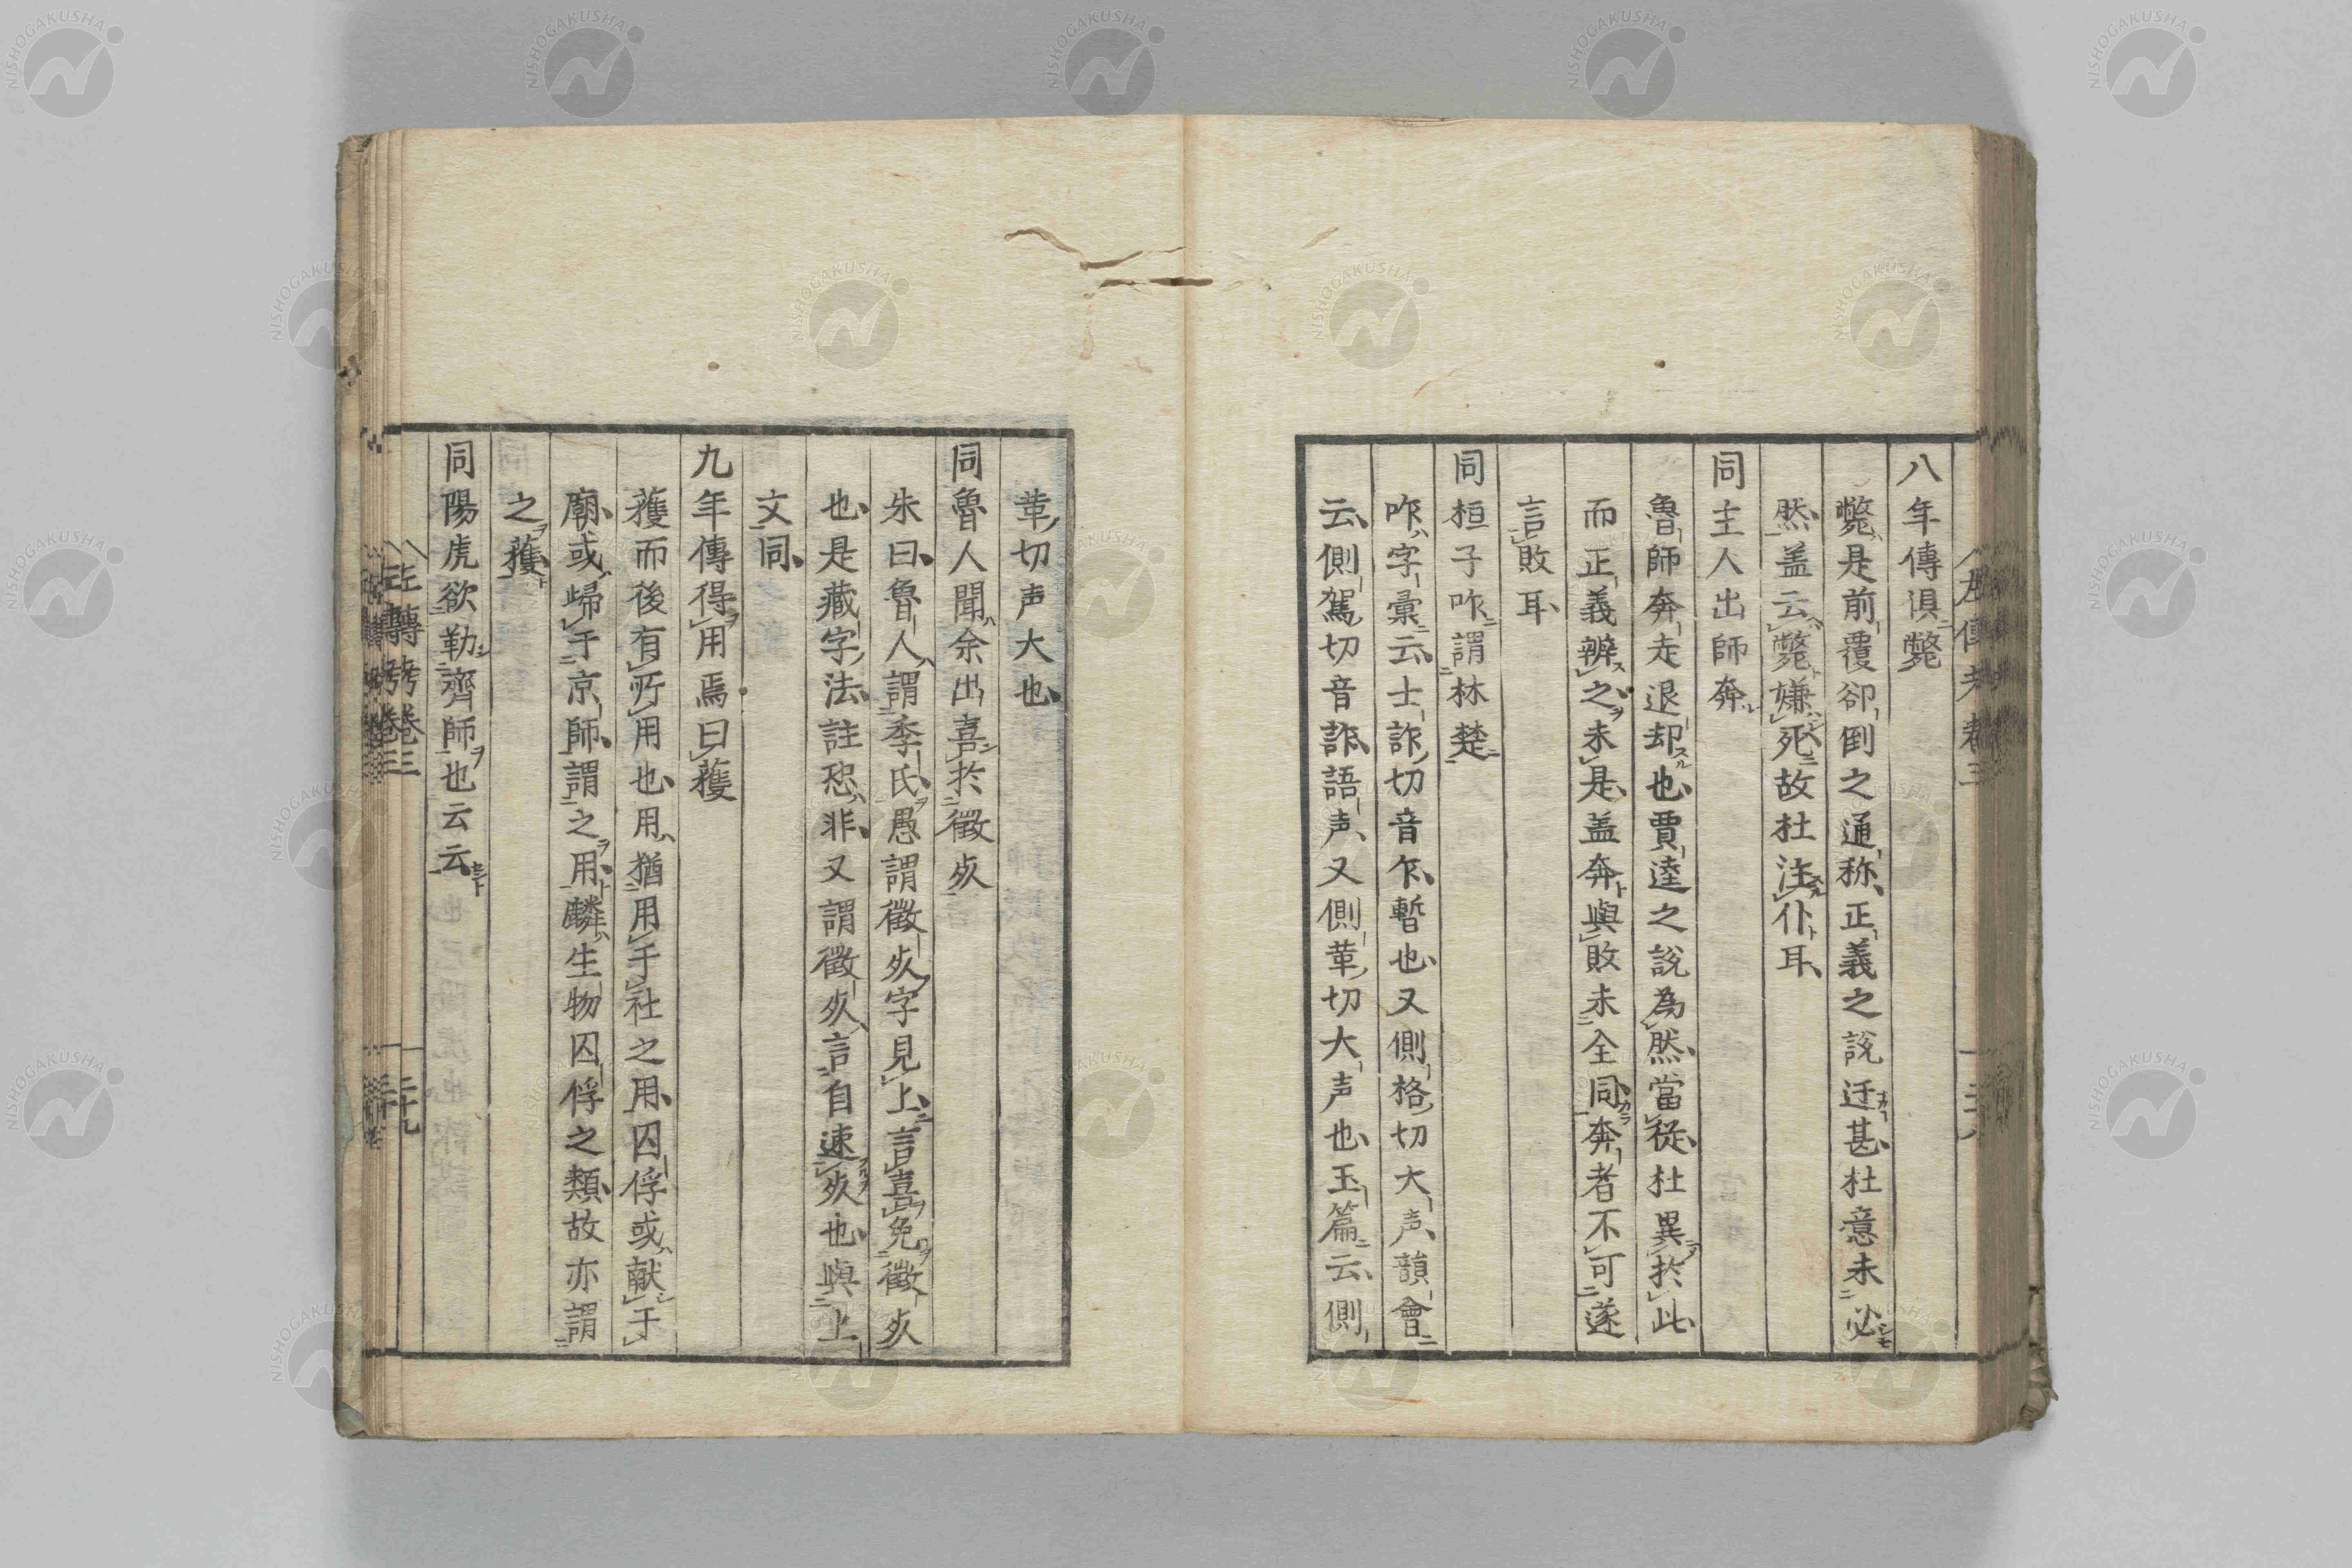 八年傳俱斃
斃是前覆卻倒之通称正義之説迂甚杜意未必
然盖云斃嫌死故杜注仆耳
同主人出師奔
魯師奔走退却也賈逵之説為然當從杜異於此
而正義辨之未是盖奔與敗未全同奔者不可遂
言敗耳
同桓子咋謂林楚
咋字彙云士詐切音乍暫也又側格切大声韻會
云側駕切音詐語声又側革切大声也玉篇云側
革切声大也
同魯人聞余出喜於徵死
朱曰魯人謂季氏愚謂徵死字見上言喜免徵死
也是藏字法註恐非又謂徵死言自速死也與上
文同
九年傳得用焉曰獲
獲而後有所用也用猶用于社之用囚俘或献于
廟或歸于京師謂之用麟生物囚俘之類故亦謂
之獲
同陽虎欲勒齊師也云云
左傳考卷三
二十九
NISHOGAKUSHA